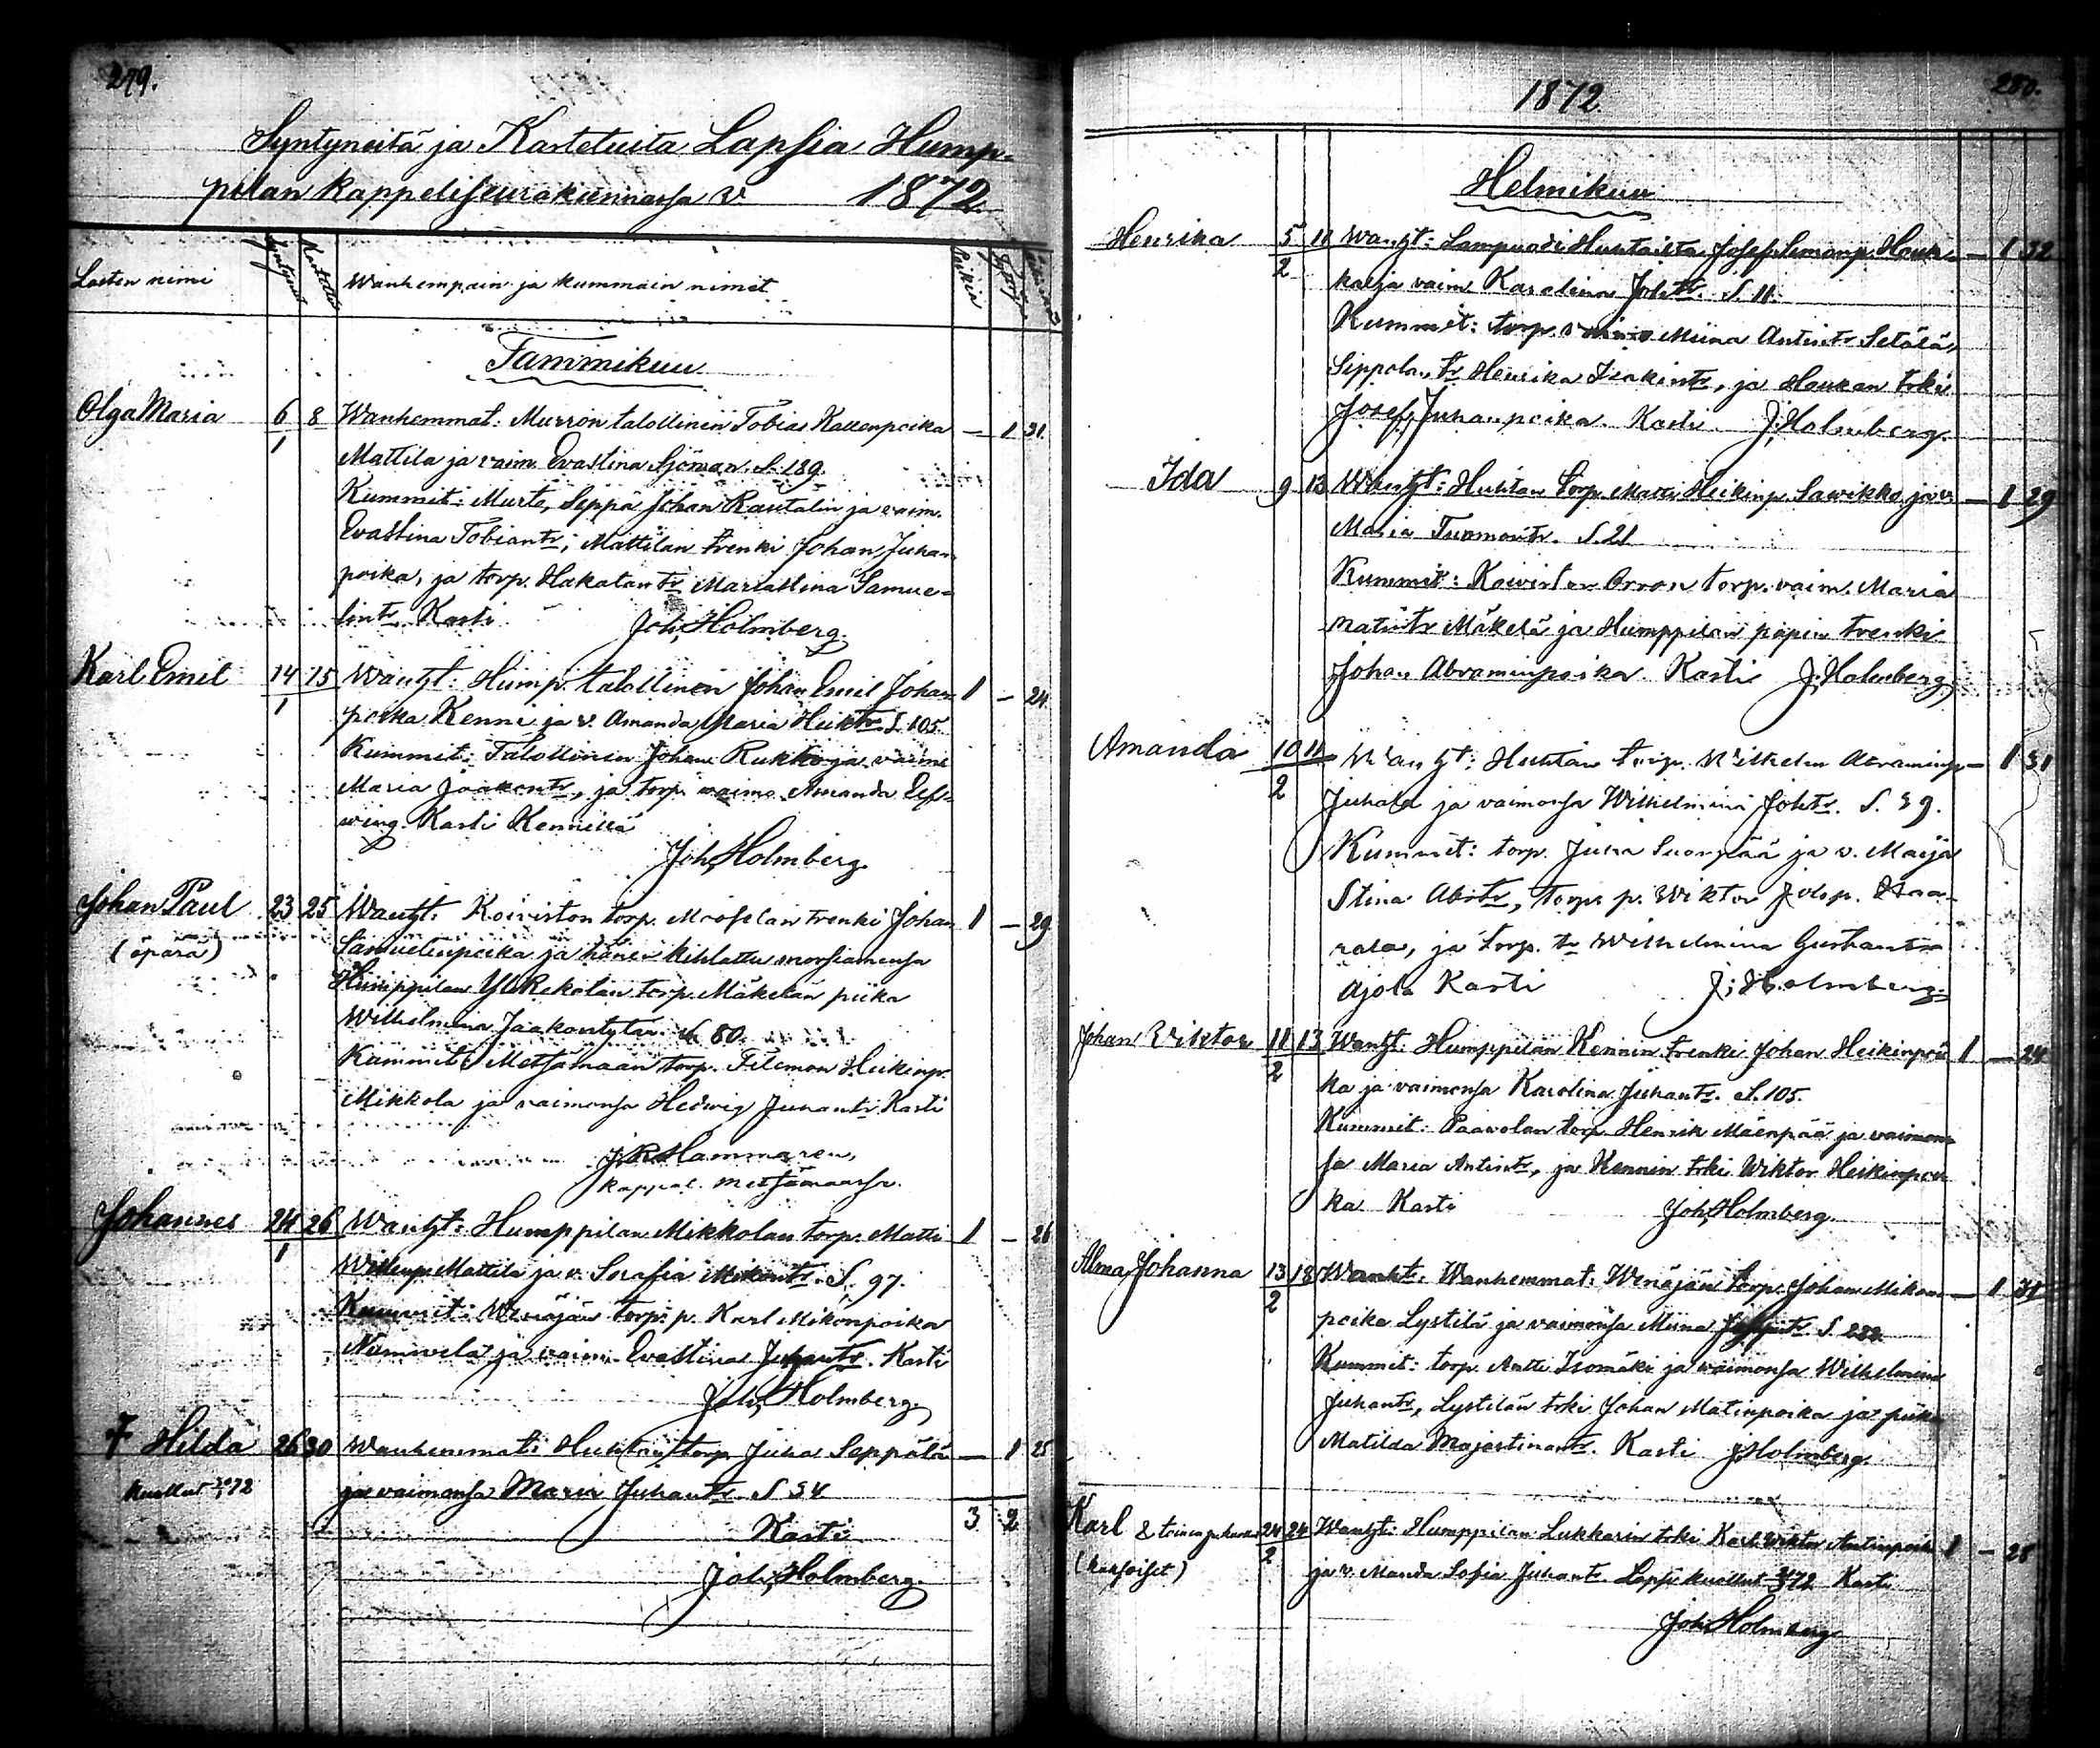 279.
Syntyneitä ja Kastetuita Lapsia Hump-
pilan kappeliseurakunnassa v. 1872.
Lasten nimi
Syntynet Kastettu Wanhempain ja kummain nimet Poikia Tyttöjä
Tammikuu
Olga Maria 6/1 8 Wanhemmat: Murron talollinen Tobias Kallenpoika — 1 31
Mattila ja vaim. Evastina Sjöman. S. 189.
Kummit: Murto, Seppä Johan Rautalin ja vaim.
Evastina Tobiantr; Mattilan trenki Johan Juhan
poika, ja torp. Hakalan tr Mariastina Samue-
lintr. Kasti Joh. Holmberg.
Karl Emil 14/1 15 Wanht: Hump. talollinen Johan Emil Johan 1 — 24
poika Kenni ja v. Amanda Maria Heiktr. S. 105.
Kummit: Talollinen Johan Rukko ja vaimo
Maria Jaakontr, ja torp. vaimo Amanda Elf-
wing. Kasti Kennillä
Joh. Holmberg.
Johan Paul 23 25 Wanht: Koiviston torp. trenki Johan 1 — 29
(äpärä) Samuelinpoika ja hänen kihlattu morsiamensa
Humppilan Yli Rekolan torp. Mäkelän piika
Wilhelmina Jaakontytär. S. 80.
Kummit: Metsämaan torp. Filemon Heikinp.
Mikkola ja vaimonsa Hedwig Juhantr. Kasti
Hammaren,
kappal. Metsämaassa.
Johannes 24/1 26 Wanht: Humppilan Mikkolan torp. Matti 1 — 26
Willenp. Mattila ja v. Serafia Mikontr. S. 97.
Kummit: Wenäjän torp. p. Karl Mikonpoika
ja vaim. Evastina Juhantr. Kasti
Joh. Holmberg.
† Hilda 26 30 Wanhemmat: Huhtan torp. Juha Seppälä — 1 25
kuollut 72 ja vaimonsa Maria Juhantr. S 34
Kasti 3 2
Joh. Holmberg.
1872 280.
Helmikuu
Henrika 5/2 11 Wanht: Lampuodi Huhtaista Josef Simonp. Hauk- — 1 32
ka ja vaim. Karolina Johtr. S. 11.
Kummit: torp. vaimo Miina Antintr Setälä,
Sippolan tr Henrika Isakintr, ja Haukan trki
Josef Juhanpoika. Kasti J. Holmberg.
Ida 9 13 Wanht: Huhtan torp. Matti Heikinp. Sawikko ja v. — 1 29
Maria Tuomontr. S. 21
Kummit: Koiviston Orron torp. vaim. Maria
Matintr Mäkelä ja Humppilan papin trenki
Johan Abraminpoika. Kasti J. Holmberg
Amanda 10/2 11 Wanht: Huhtan torp. Wilhelm Abraminp. — 1 31
Juhala ja vaimonsa Wilhelmina Johtr. S. 39.
Kummit: torp. Juha Suonpää ja v. Maija
Stina Abrtr, torp. p. Wiktor Johp. Haa-
rala, ja torp. tr Wilhelmina Gustaintr
Ajola Kasti J. Holmberg.
Johan Wiktor 11/2 13 Wanht: Humppilan Kennin trenki Johan Heikinpoi 1 — 24
ka ja vaimonsa Karolina Juhantr. S. 105.
Kummit: Paavolan torp. Henrik Mäenpää ja vaimon-
sa Maria Antintr, ja Kennin trki Wiktor Heikinpoi
ka Kasti Joh. Holmberg.
Alma Johanna 13/2 18 Wanht. Wanhemmat: Wenäjän torp. Johan Mikon — 1 31
poika Lystilä ja vaimonsa Miina S. 232.
Kummit: torp. Antti Isomäki ja vaimonsa Wilhelmina
Juhantr, Lystilän trki Johan Matinpoika ja piika
Matilda Kasti J. Holmberg.
Karl 24/2 24 Wanht: Humppilan Lukkarin trki Karl Wiktor Antinpoik 1 — 28
(kaksoiset) ja v. Manda Sofia Juhantr. Lapsi kuollut 72 Kasti
Joh. Holmberg